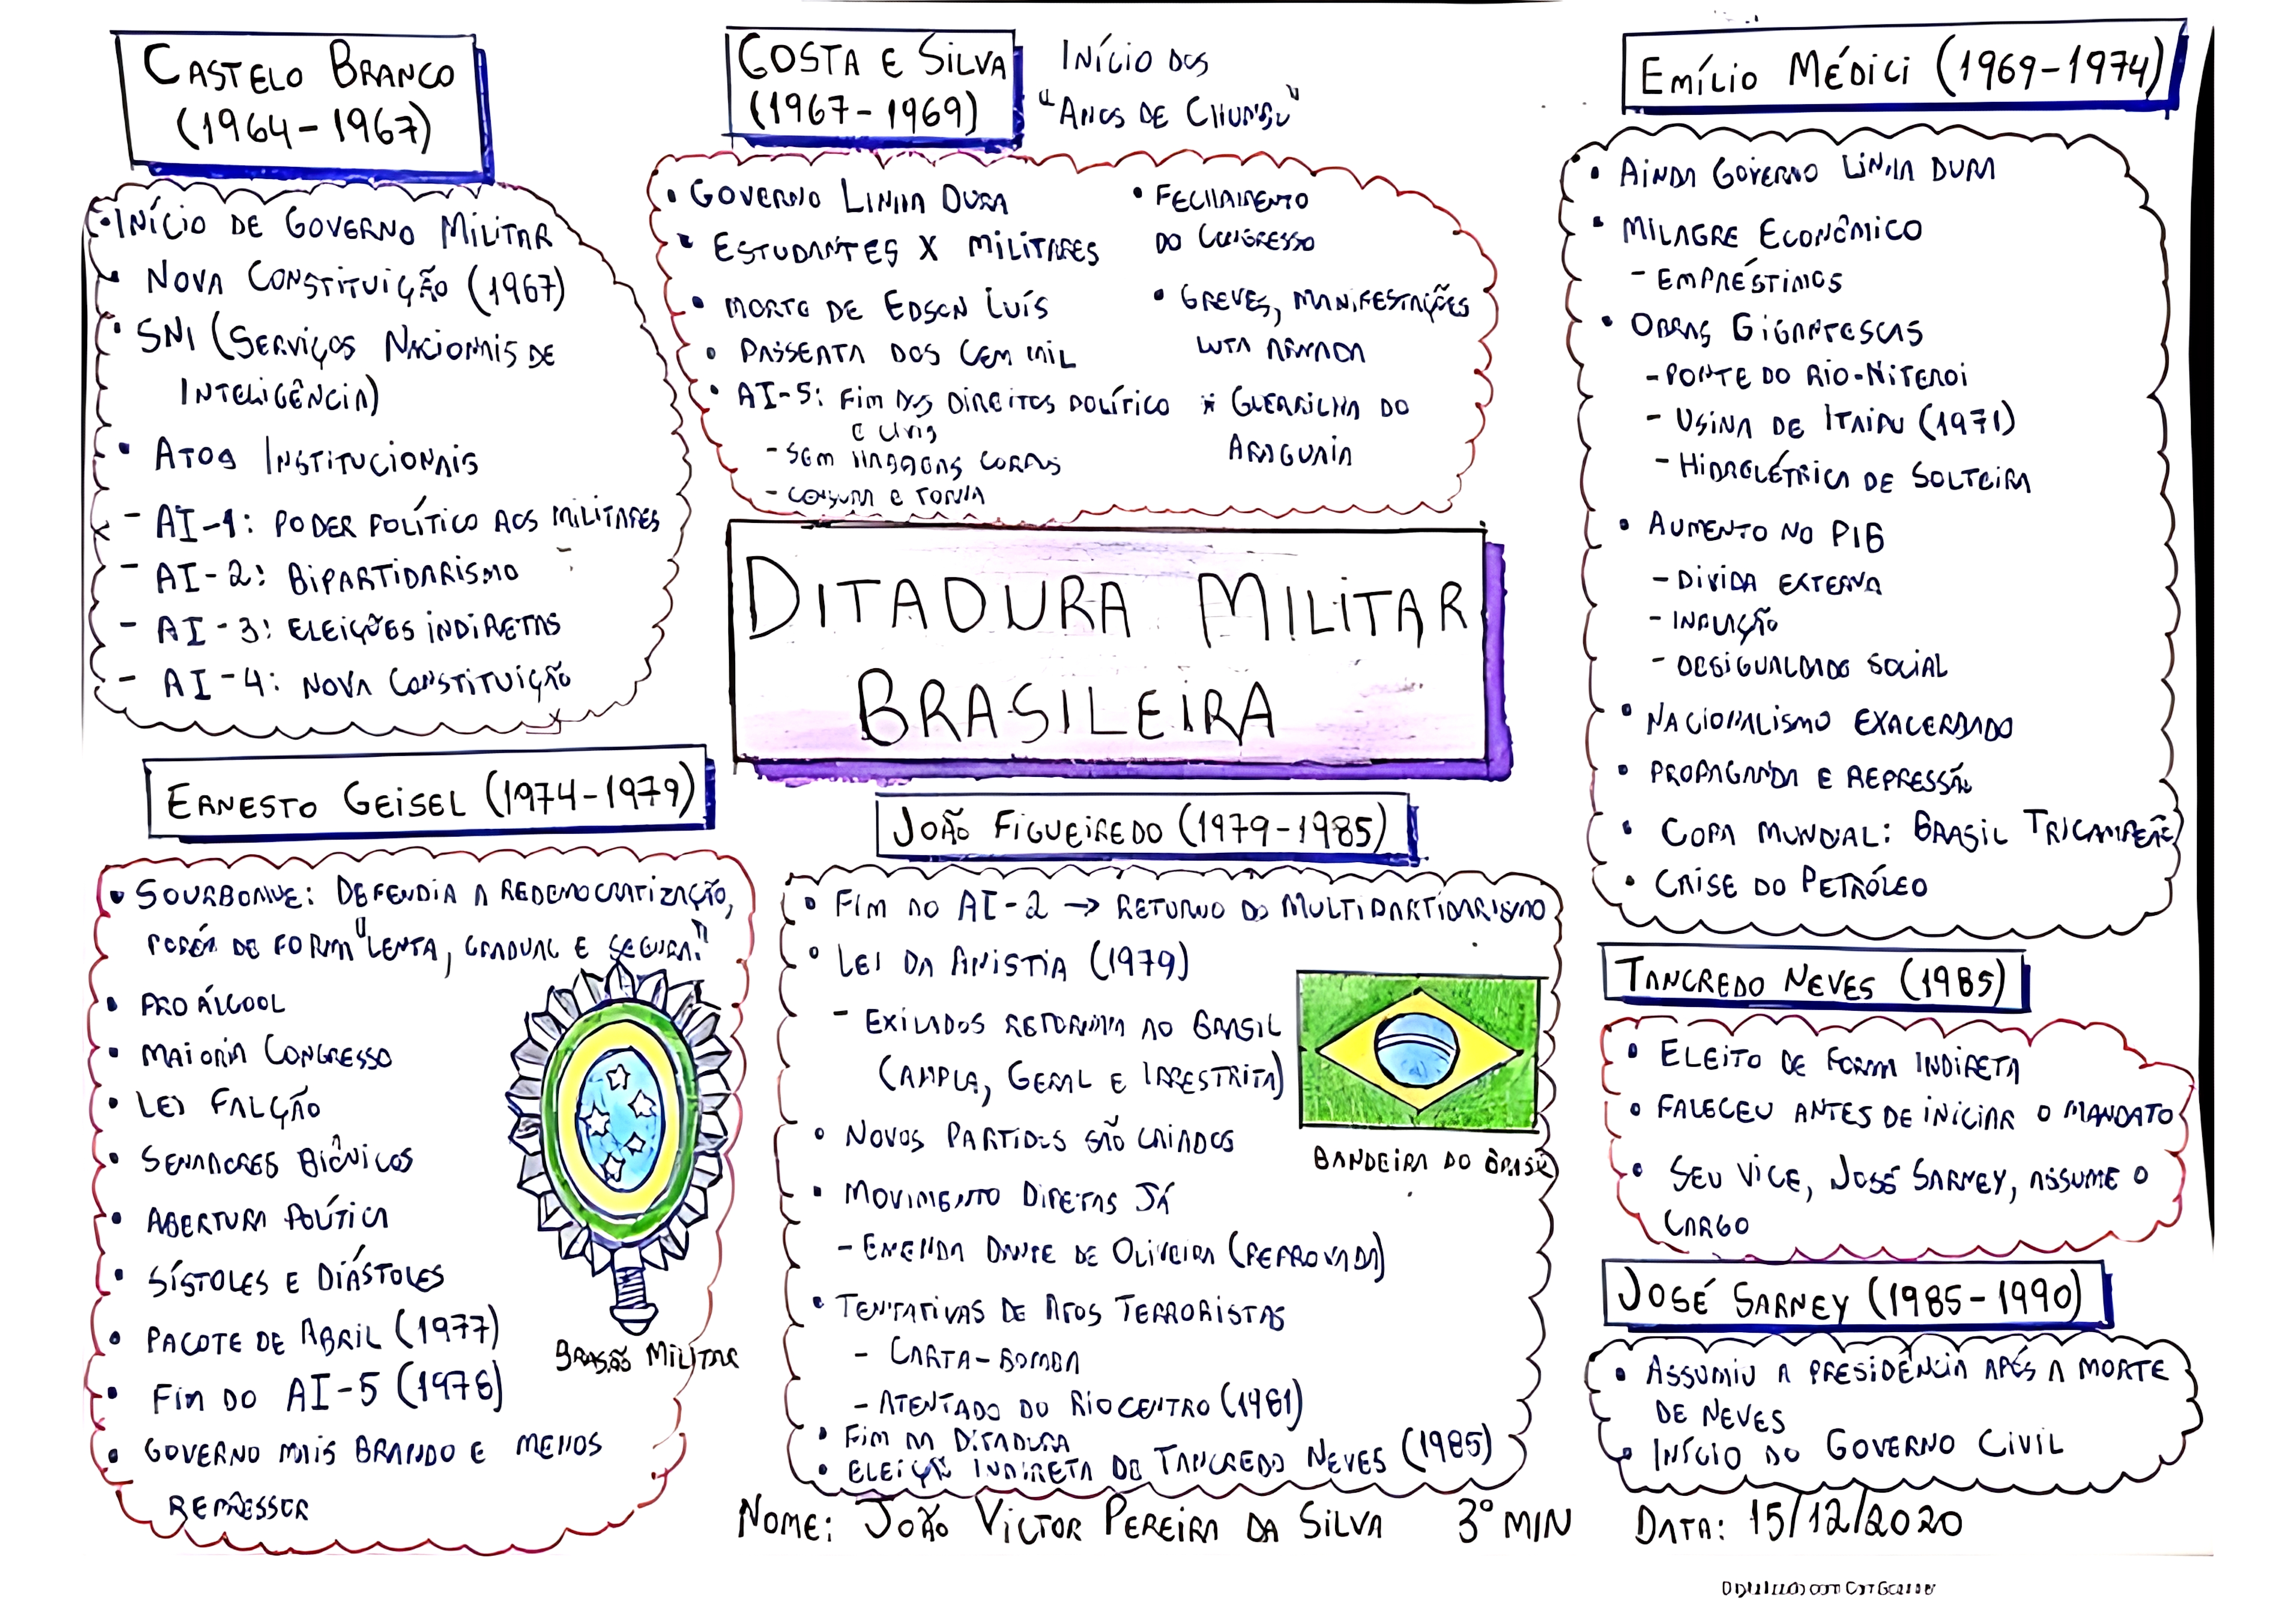 CASTELO BRANCO
(1964-1967)
INÍCIO DE GOVERNO MILITAR
NOVA CONSTITUIÇÃO (1967)
SNI (SERVIÇOS NACIONAIS DE
INTELIGÊNCIA)
ATOS INSTITUCIONAIS
- AI-1: PODER POLÍTICO AOS MILITARES
- AI-2: BIPARTIDARISMO
- AI-3: ELEIÇÕES INDIRETAS
- AI-4: NOVA CONSTITUIÇÃO
COSTA E SILVA
(1967-1969)
INÍCIO DOS
"ANOS DE CHUMBO"
GOVERNO LINHA DURA
ESTUDANTES X MILITARES
MORTE DE EDSON LUÍS
PASSEATA DOS CEM MIL
AI-5: FIM DOS DIREITOS POLÍTICO
E CIVIS
- SEM HABEAS CORPUS
- CENSURA E TORTURA
FECHAMENTO
DO CONGRESSO
GREVES, MANIFESTAÇÕES
LUTA ARMADA
* GUERRILHA DO
ARAGUAIA
EMÍLIO MÉDICI (1969-1974)
AINDA GOVERNO LINHA DURA
MILAGRE ECONÔMICO
- EMPRÉSTIMOS
OBRAS GIGANTESCAS
- PONTE DO RIO-NITEROI
- USINA DE ITAIPU (1971)
- HIDRELÉTRICA DE SOLTEIRA
AUMENTO NO PIB
- DIVIDA EXTERNA
- INFLAÇÃO
- DESIGUALDADE SOCIAL
NACIONALISMO EXACERBADO
PROPAGANDA E REPRESSÃO
COPA MUNDIAL: BRASIL TRICAMPEÃO
CRISE DO PETRÓLEO
DITADURA MILITAR
BRASILEIRA
ERNESTO GEISEL (1974-1979)
SOURBONNE: DEFENDIA A REDEMOCRATIZAÇÃO,
PORÉM DE FORMA "LENTA, GRADUAL E SEGURA."
PRO ÁLCOOL
MAIORIA CONGRESSO
LEI FALCÃO
SENADORES BIÔNICOS
ABERTURA POLÍTICA
SÍSTOLES E DIÁSTOLES
PACOTE DE ABRIL (1977)
FIM DO AI-5 (1978)
GOVERNO MAIS BRANDO E MENOS
REPRESSOR
BRASÃO MILITAR
JOÃO FIGUEIREDO (1979-1985)
FIM DO AI-2 → RETORNO DO MULTIPARTIDARISMO
LEI DA ANISTIA (1979)
- EXILADOS RETORNAM AO BRASIL
(AMPLA, GERAL E IRRESTRITA)
NOVOS PARTIDOS SÃO CRIADOS
MOVIMENTO DIRETAS JÁ
- EMENDA DANTE DE OLIVEIRA (REPROVADA)
TENTATIVAS DE ATOS TERRORISTAS
- CARTA-BOMBA
- ATENTADO DO RIOCENTRO (1981)
FIM DA DITADURA
ELEIÇÃO INDIRETA DE TANCREDO NEVES (1985)
BANDEIRA DO BRASIL
TANCREDO NEVES (1985)
ELEITO DE FORMA INDIRETA
FALECEU ANTES DE INICIAR O MANDATO
SEU VICE, JOSÉ SARNEY, ASSUME O
CARGO
JOSÉ SARNEY (1985-1990)
ASSUMIU A PRESIDÊNCIA APÓS A MORTE
DE NEVES
INÍCIO DO GOVERNO CIVIL
NOME: JOÃO VICTOR PEREIRA DA SILVA 3º MIN DATA: 15/12/2020
Digitalizado com CamScanner